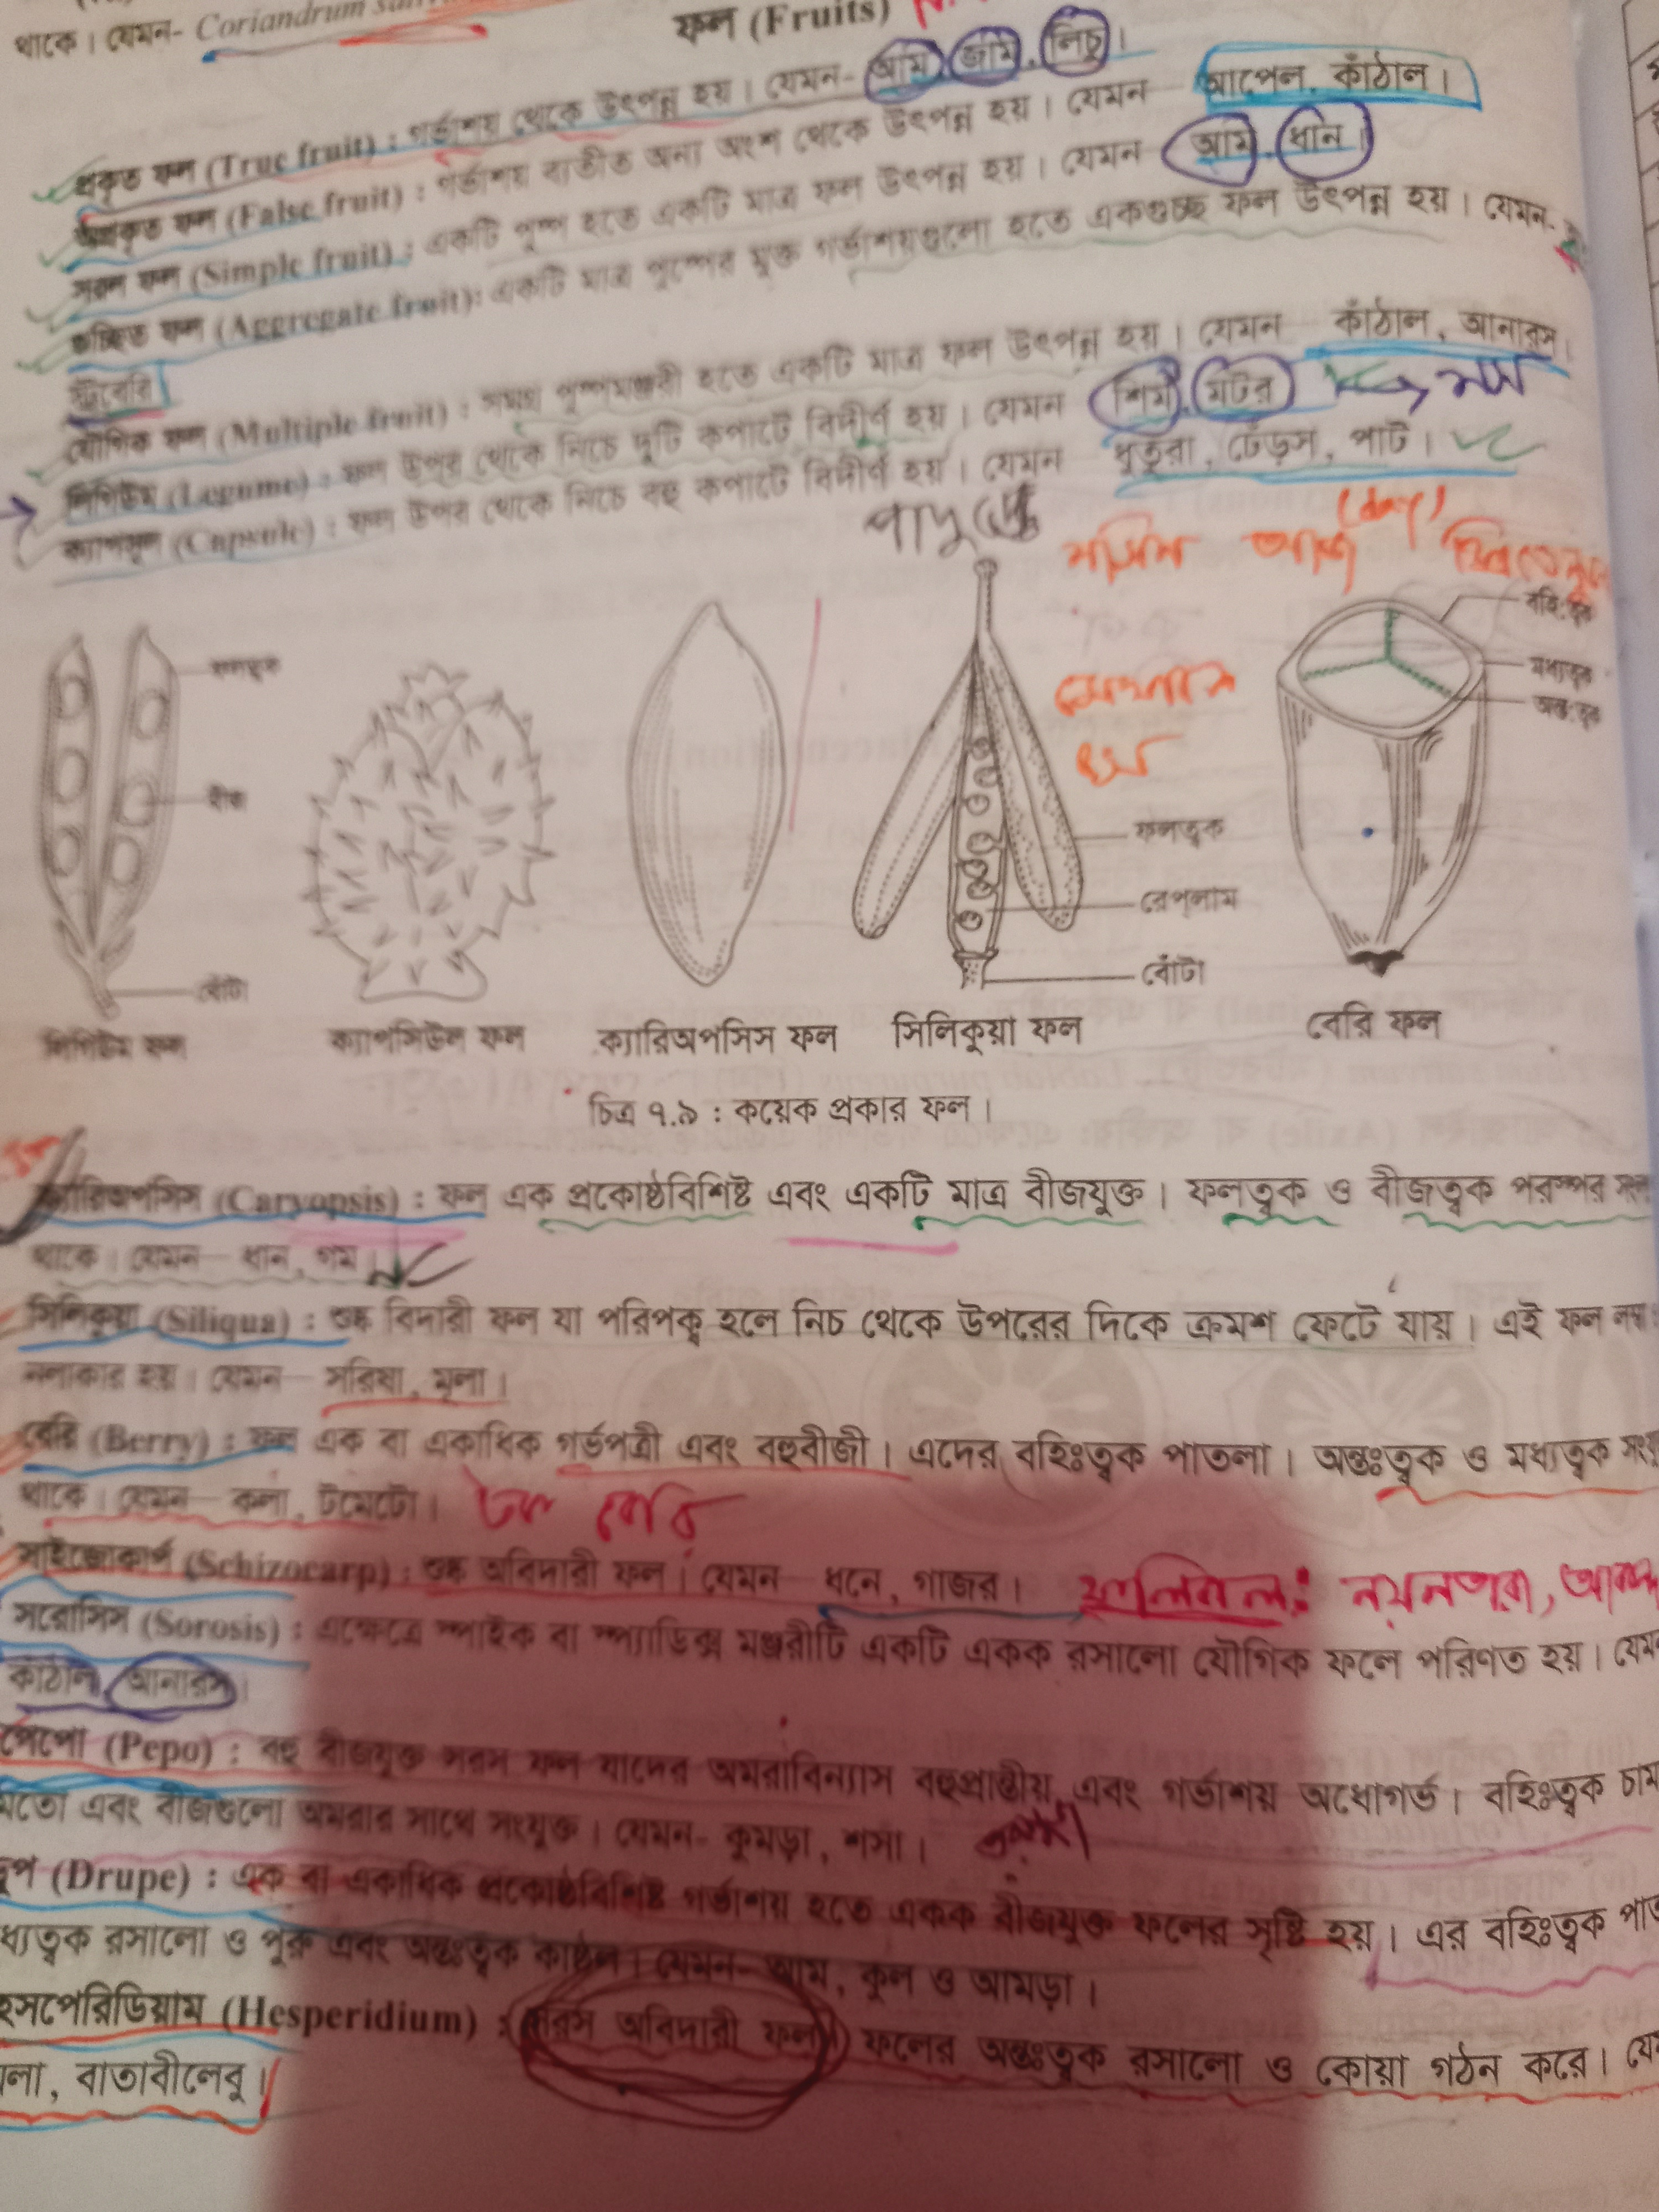 থাকে। যেমন- Coriandrum
ফল (Fruits)
প্রকৃত ফল (True fruit) : গর্ভাশয় থেকে উৎপন্ন হয়। যেমন- আম, জাম, লিচু।
অপ্রকৃত ফল (False fruit) : গর্ভাশয় ব্যতীত অন্য অংশ থেকে উৎপন্ন হয়। যেমন- আপেল, কাঁঠাল।
সরল ফল (Simple fruit) : একটি পুষ্প হতে একটি মাত্র ফল উৎপন্ন হয়। যেমন- আম, ধান।
গুচ্ছিত ফল (Aggregate fruit): একটি মাত্র পুষ্পের মুক্ত গর্ভাশয়গুলো হতে একগুচ্ছ ফল উৎপন্ন হয়। যেমন-
স্ট্রবেরি
যৌগিক ফল (Multiple fruit) : সমগ্র পুষ্পমঞ্জরী হতে একটি মাত্র ফল উৎপন্ন হয়। যেমন- কাঁঠাল, আনারস।
লিগিউম (Legume) : ফল উপর থেকে নিচে দুটি কপাটে বিদীর্ণ হয়। যেমন- শিম, মটর
ক্যাপসুল (Capsule) : ফল উপর থেকে নিচে বহু কপাটে বিদীর্ণ হয়। যেমন- ধুতুরা, ঢেঁড়স, পাট।
(day)
ফলত্বক
বীজ
বোঁটা
লিগিউম ফল
ক্যাপসিউল ফল
ক্যারিঅপসিস ফল
ফলত্বক
রেপ্লাম
বোঁটা
সিলিকুয়া ফল
বহিঃত্বক
মধ্যত্বক
অন্তঃত্বক
বেরি ফল
চিত্র ৭.৯ : কয়েক প্রকার ফল।
ক্যারিঅপসিস (Caryopsis) : ফল এক প্রকোষ্ঠবিশিষ্ট এবং একটি মাত্র বীজযুক্ত। ফলত্বক ও বীজত্বক পরস্পর
থাকে। যেমন- ধান, গম।
সিলিকুয়া (Siliqua) : শুষ্ক বিদারী ফল যা পরিপক্ব হলে নিচ থেকে উপরের দিকে ক্রমশ ফেটে যায়। এই ফল
নলাকার হয়। যেমন- সরিষা, মূলা।
বেরি (Berry) : ফল এক বা একাধিক গর্ভপত্রী এবং বহুবীজী। এদের বহিঃত্বক পাতলা। অন্তঃত্বক ও মধ্যত্বক
থাকে। যেমন- কলা, টমেটো। টক বেরি
সাইজোকার্প (Schizocarp) : শুষ্ক অবিদারী ফল। যেমন- ধনে, গাজর। ফলিকল: নয়নতারা,
সরোসিস (Sorosis) : এক্ষেত্রে স্পাইক বা স্প্যাডিক্স মঞ্জরীটি একটি একক রসালো যৌগিক ফলে পরিণত হয়।
কাঁঠাল, আনারস।
পেপো (Pepo) : বহু বীজযুক্ত সরস ফল যাদের অমরাবিন্যাস বহুপ্রান্তীয় এবং গর্ভাশয় অধোগর্ভ। বহিঃত্বক
মতো এবং বীজগুলো অমরার সাথে সংযুক্ত। যেমন- কুমড়া, শসা।
(Drupe) : এক বা একাধিক প্রকোষ্ঠবিশিষ্ট গর্ভাশয় হতে একক বীজযুক্ত ফলের সৃষ্টি হয়। এর বহিঃত্বক
রসালো ও পুরু এবং অন্তঃত্বক কাষ্ঠল। যেমন- আম, কুল ও আমড়া।
(Hesperidium) : সরস অবিদারী ফল। ফলের অন্তঃত্বক রসালো ও কোয়া গঠন করে।
বাতাবীলেবু।